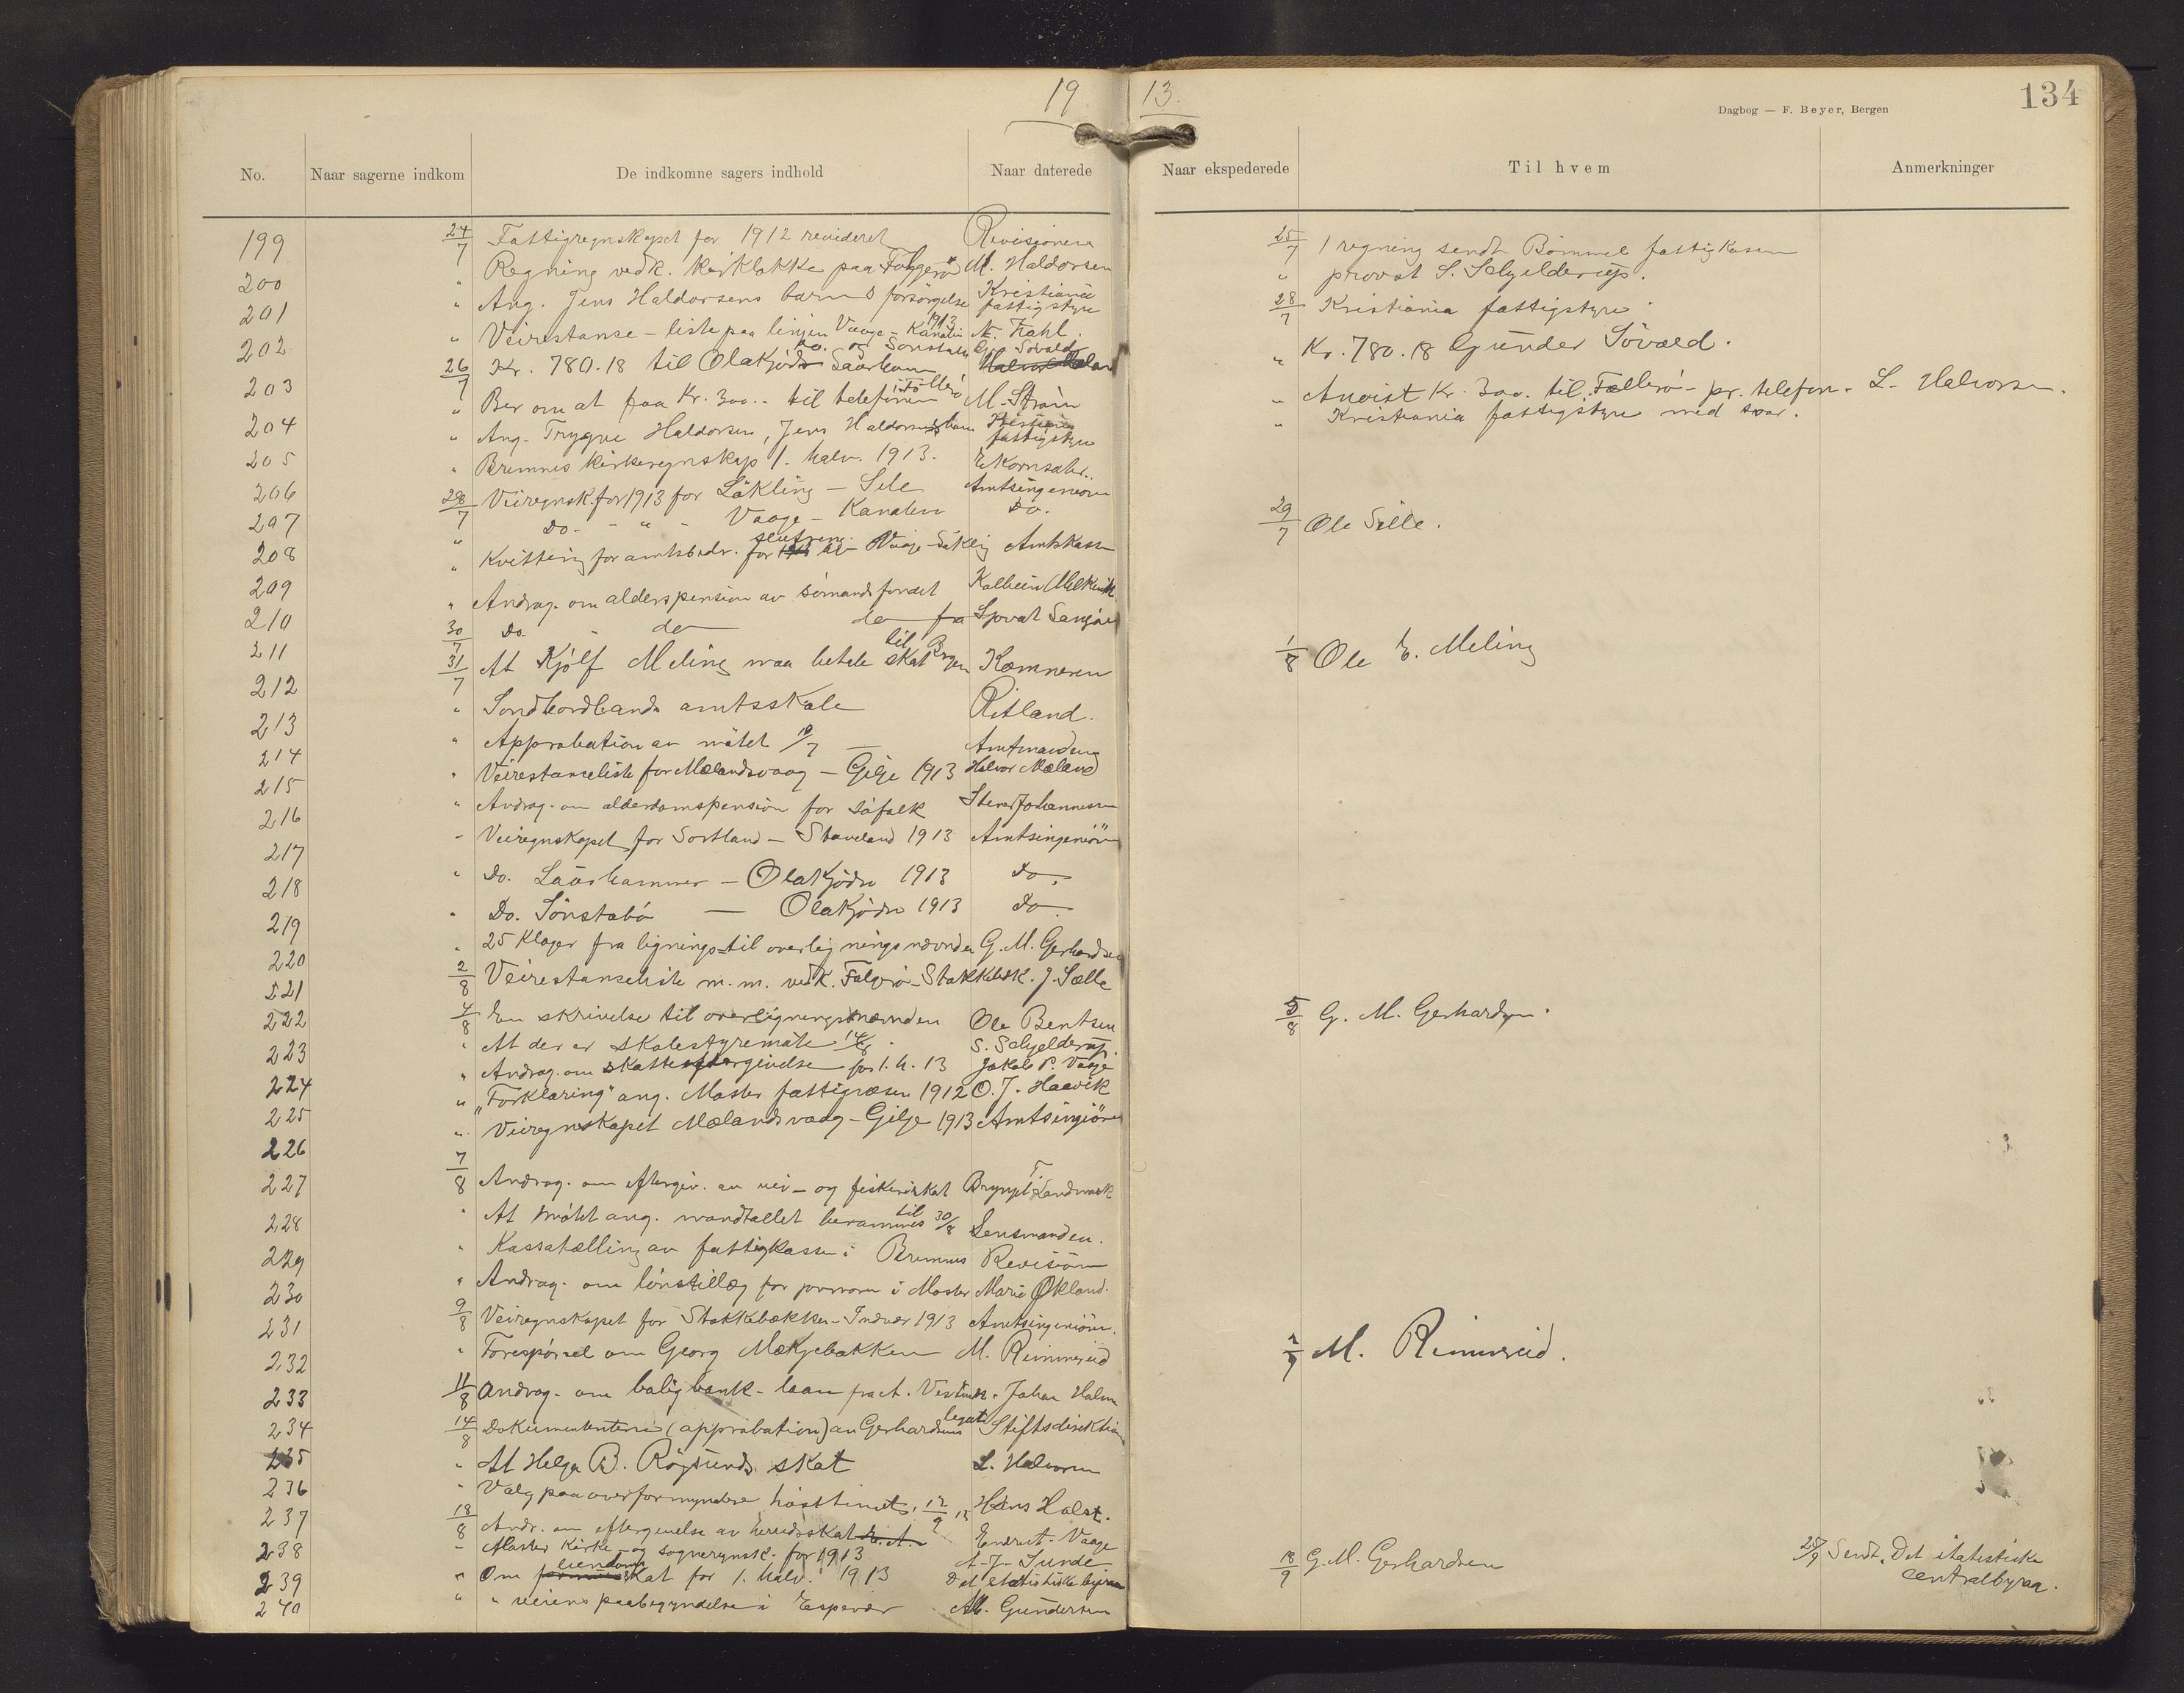 19 13.
Dagbog — F. Beyer, Bergen
134
No. Naar sagerne indkom De indkomne sagers indhold Naar daterede Naar ekspederede Til hvem Anmerkninger
199 24/7 Fattigregnskapet for 1912 revideret Revisionen 25/7 1 regning sendt Bömmel fattigkasse
200 " Regning vedk. kirklokke paa M. Haldorsen " provst S. Schjelderup.
201 " Ang. Jens Haldorsens barns forsörgelse Kristiania fattigstyre 28/7 Kristiania fattigstyre
202 " Veirestanse-liste paa linjen Vaage - Kanalen 1913 N. Trahl.
203 26/7 Kr. 780.18 til Olakjödn Laurhammer og Sönstabö G. Sövold " Kr. 780.18 Gunder Sövold.
204 " Ber om at faa Kr. 300.- til telefonen M. Ström " Anvist Kr. 300. til Follerö - pr. telefon - L. Halvorsen.
205 " Ang. Trygve Haldorsen, Jens Haldorsens barn Kristiania fattigstyre " Kristiania fattigstyre med svar.
206 " Bremnes kirkeregnskap 1. halv. 1913. E. Kornsæter.
207 28/7 Veiregnsk. for 1913 for Läkling - Sele Amtsingeniören 29/7 Ole Sele.
208 " Do. - " - Vaage - Kanalen Do.
209 " Kvittering for amtsbidr. for Vaage - Läkling Amtskassen
210 " Andrag. om alderspension av sömandsfondet
211 30/7 Do - do do fra
212 31/7 At Kjölf Meling maa betale skat til Bergen Kæmneren 1/8 Ole E. Meling
213 " Söndhordlands amtsskole Ritland.
214 " Approbation av mötet 10/7 — Amtmanden
215 " Veirestanseliste for Mælandsvaag - Gilje 1913 Halvor Mæland
216 " Andrag. om alderdomspension for söfolk Johannessen
217 " Veiregnskapet for Sortland - Stavland 1913 Amtsingeniören
218 " Do. Laurhammer - Olakjödn 1913 do.
219 " Do. Sönstabö — Olakjödn 1913 do
220 " 25 Klager fra lignings- til overligningsnævnden G. M. Gerhardsen
221 2/8 Veirestanseliste m. m. vedk. - Stokkebæk. J. Sælle
222 4/8 En skrivelse til overligningsnævnden Ole Bentsen 5/8 G. M. Gerhardsen.
223 " At der er skolestyremöte 14/8 S. Schjelderup.
224 " Andrag. om skatteeftergivelse for 1. h. 13 Jakob P. Vaage
225 " "Forklaring" ang. Moster fattigvæsen 1912 O. J. Haavik
226 " Veiregnskapet Mælandsvaag - Gilje 1913 Amtsingiören
227 7/8 Andrag. om eftergiv. av vei- og fiskeriskat Brynjel T. Landmark
228 " At mötet ang. mandtallet berammes til 30/8 Lensmanden.
229 " Kassatælling av fattigkassen i Bremnes Revisionen
230 " Andrag. om lönstillæg for jormor i Moster Marie Økland.
231 9/8 Veiregnskapet for Stokkebækken - Indvær 1913 Amtsingeniören.
232 " Forespörsel om Georg Mækjebakken M. Rimmereid M. Rimmereid.
233 11/8 Andrag. om boligbank-laan fra Johan Holm
234 14/8 Dokumenterne (approbation) av Gerhardsens legat Stiftsdirektion
235 " At Helge B. Rögsunds skat L. Halvorsen
236 " Valg paa overformyndere hösttinget, 12/9 13 Hans Holst.
237 18/8 Andr. om eftergivelse av herredsskat Endret Vaage
238 " Moster kirke- og sogneregnsk. for 1913 A. J. Sunde
239 " Om eiendomsskat for 1. halv. 1913 Det statistiske byraa 18/9 G. M. Gerhardsen 25/9 Sendt. Det statistiske centralbyraa.
240 " " veiens paabegyndelse i Espevær M. Gundersen